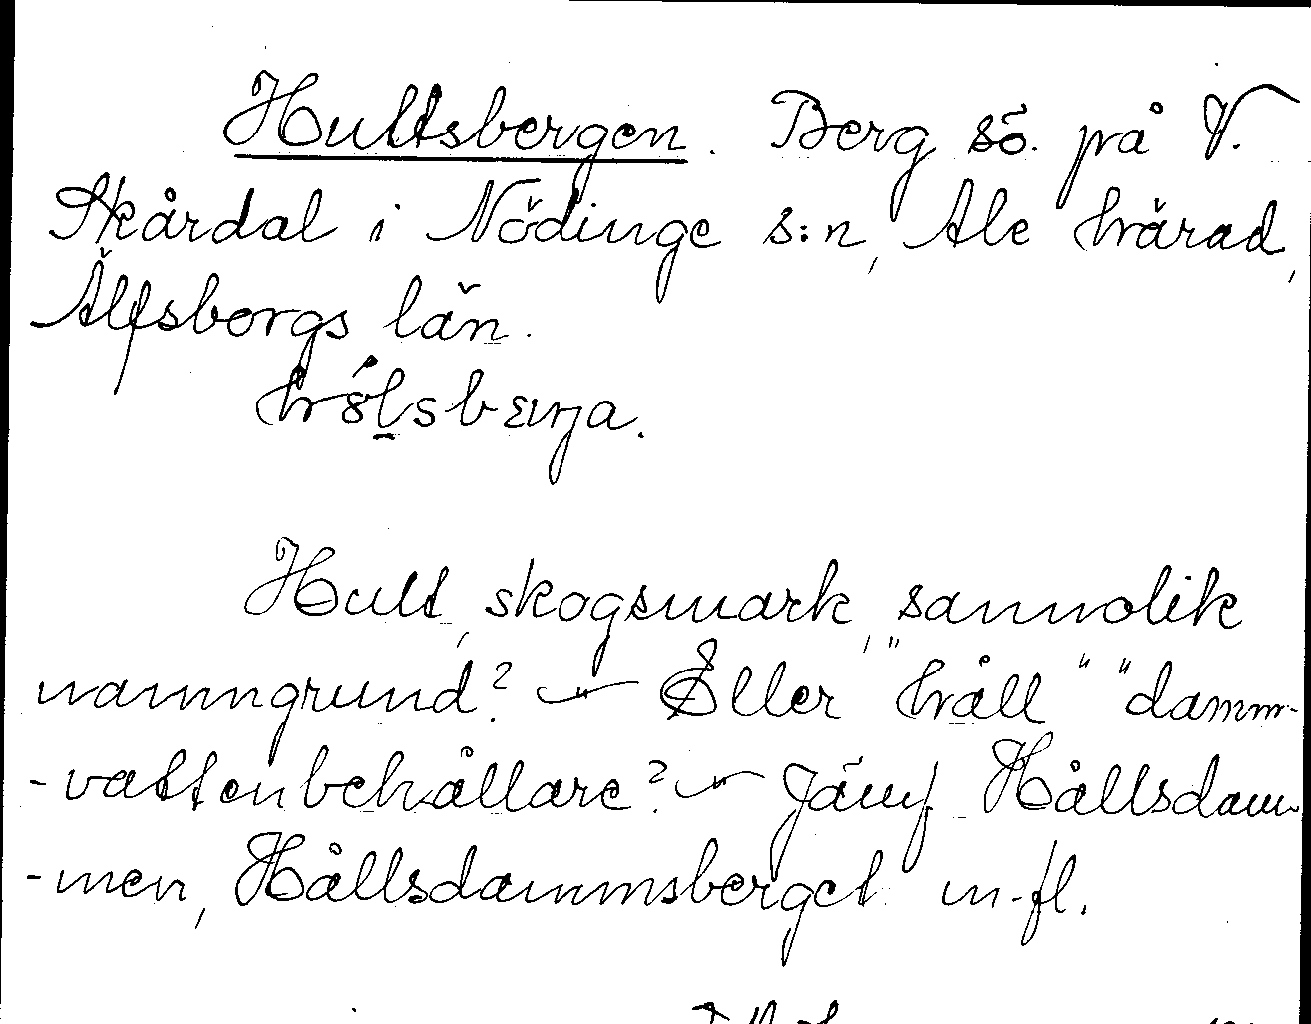 Hultsbergen. Berg sö. på V.
Skårdal i Nödinge s:n, Ale härad,
Älfsborgs län.
Hult, skogsmark, sannolik
namngrund? — Eller "håll" "damm-
-vattenbehållare? — Jämf Hållsdam-
-men, Hållsdammsberget m.fl.